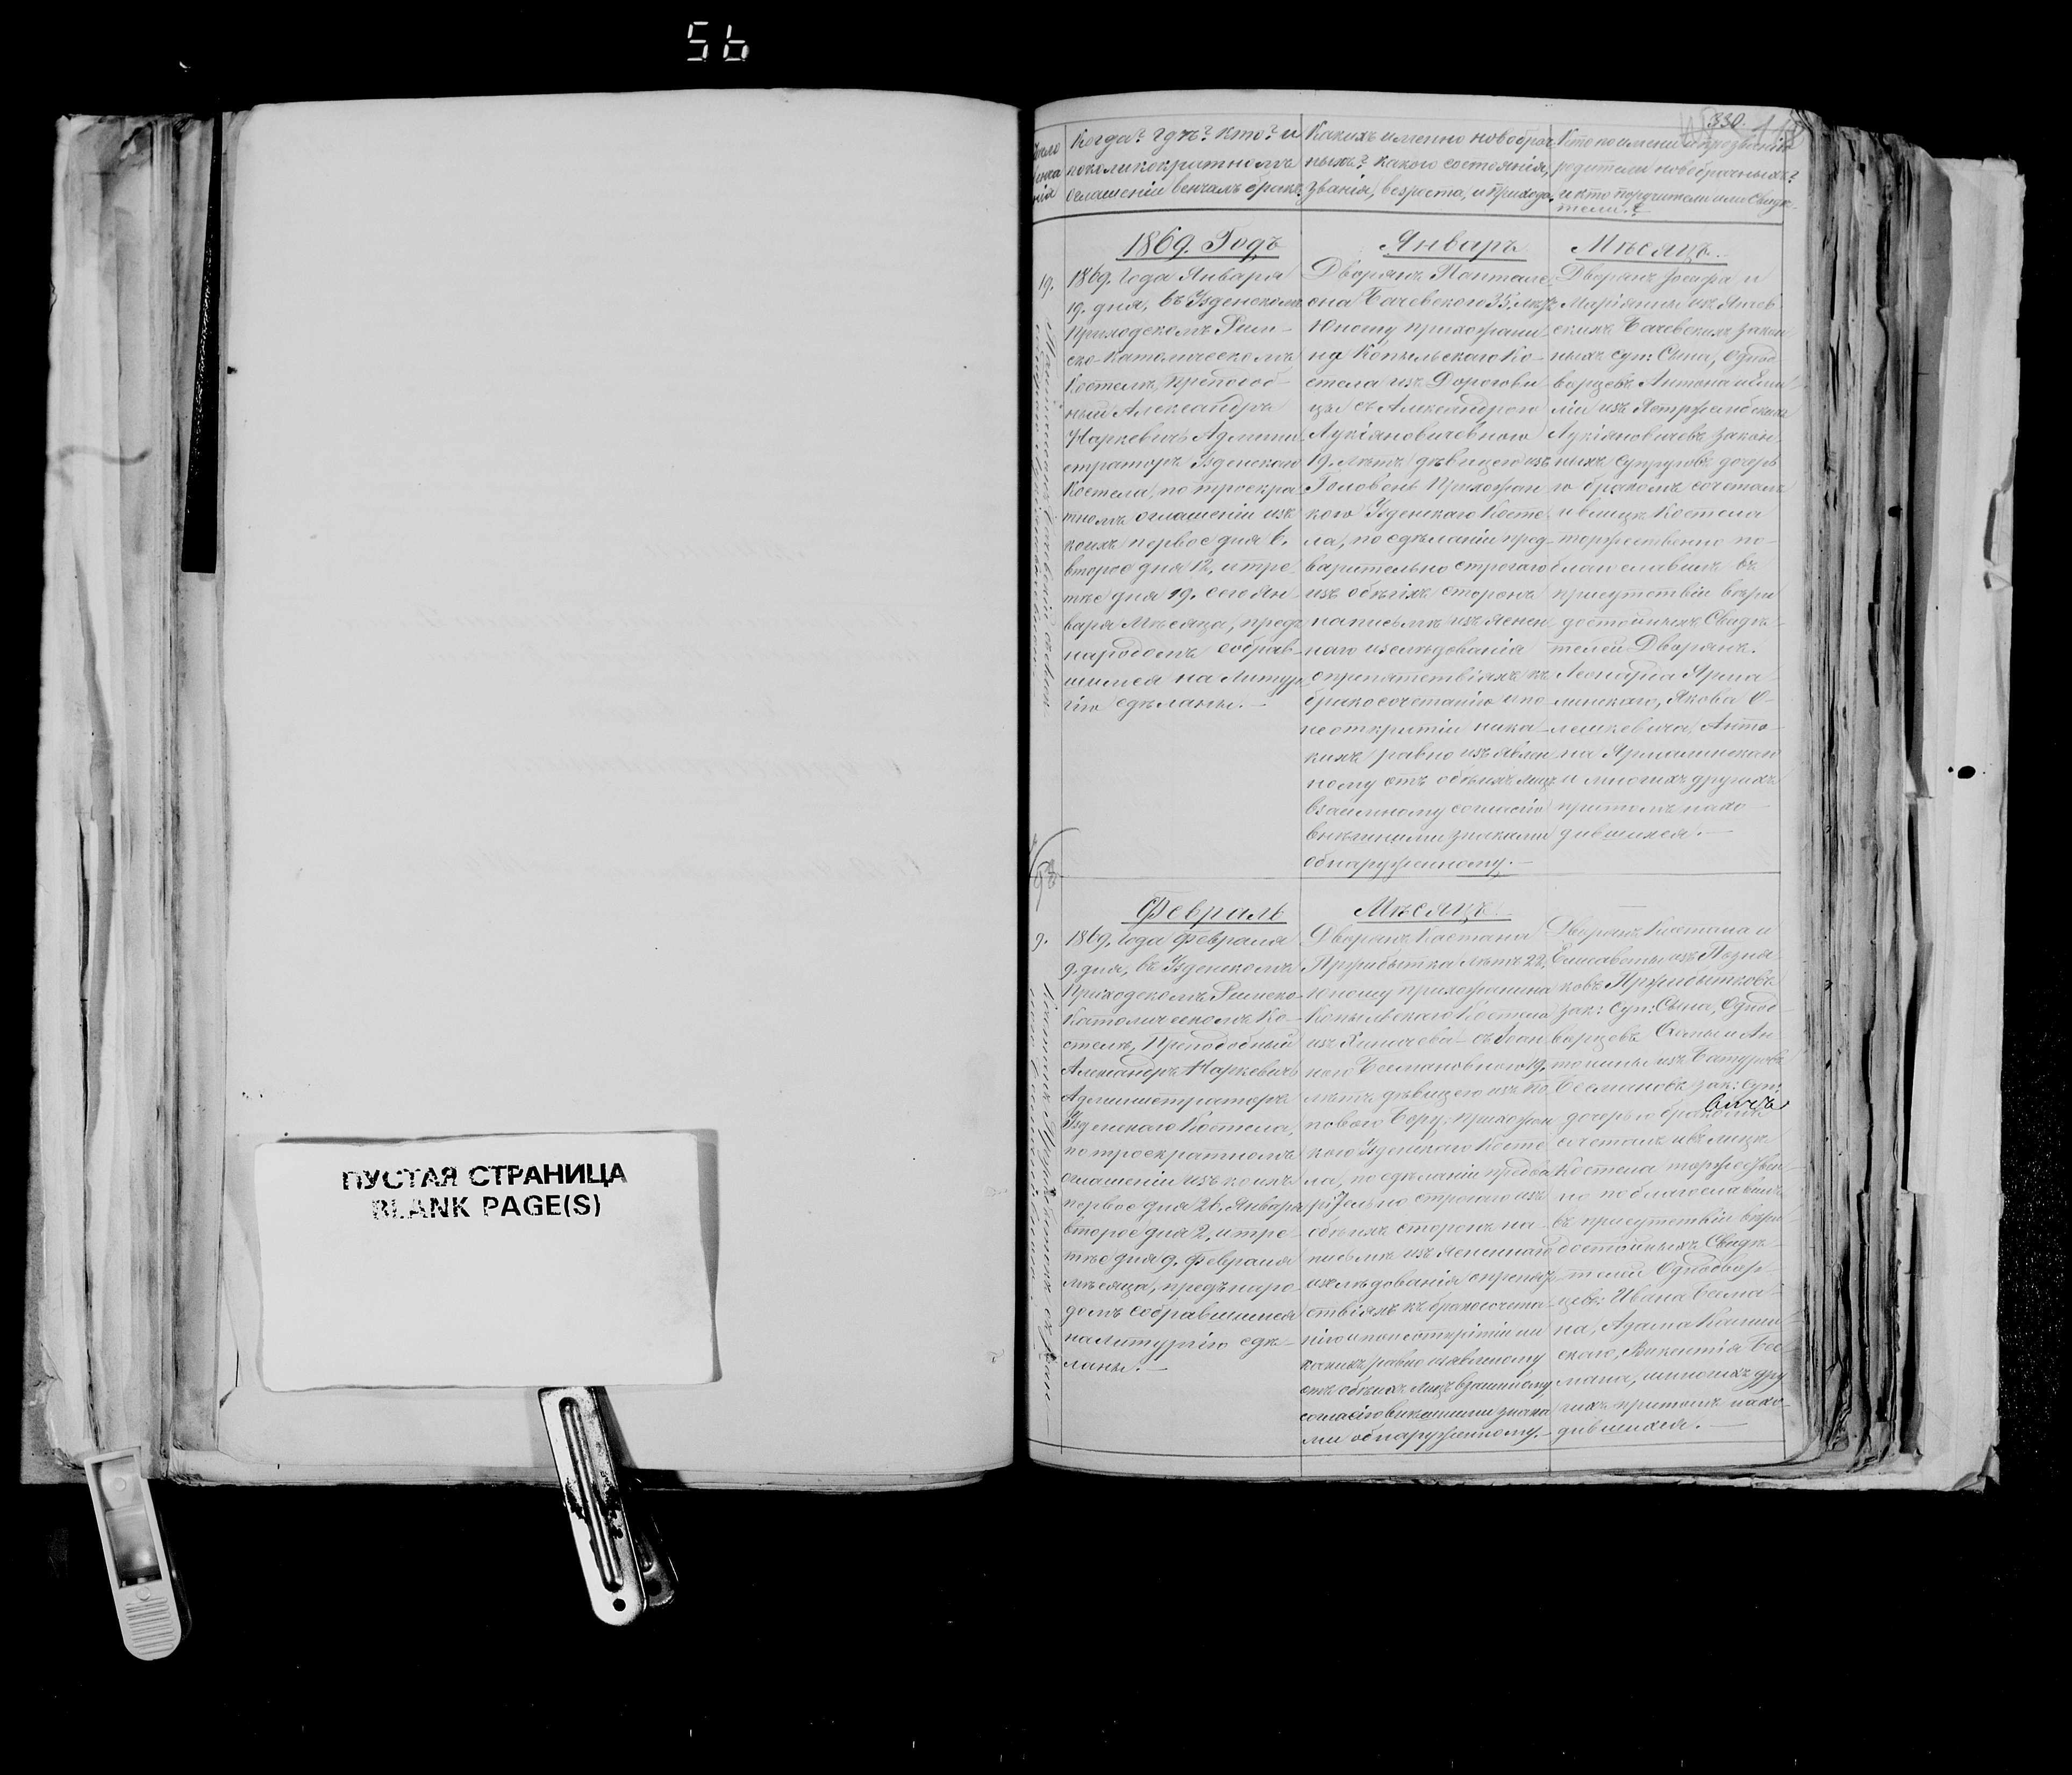 56
ПУСТАЯ СТРАНИЦА
BLANK PAGE(S)
330.
Когда? Гдѣ? Кто? и
по коликократномъ
оглашеніи венчалъ бракъ?
Какихъ именно новобрач
ныхъ? какого состоянія,
званія, возроста, и прихода,
Кто по имени и прозванію
родители новобрачныхъ?
и кто поручители или Свидѣ-
тели?
1869. Годъ
19.
1869. Года Января
19. дня, въ Узденскомъ
Приходскомъ Рим-
ско-Католическомъ
Костелѣ, Преподоб-
ный Александръ
Наркевичъ Админи-
страторъ Узденскаго
Костела, по троекра-
тномъ оглашеніи изъ
коихъ первое дня 6.
второе дня 12, и тре-
тье дня 19. сего Ян-
варя Мѣсяца, предъ
народомъ собрав-
шимся на Литур-
гію сдѣланы.—
Январь
Дворянъ Пантале-
она Бачевскаго 35. лѣтъ
Юношу прихожани-
на Копыльскаго Ко-
стела изъ Дорогови
цы съ Александрою
Лукіяновичовною
19. лѣтъ дѣвицею изъ
Головень Прихожан
кою Узденскаго Косте
ла, по сдѣланіи пред-
варительно строгаго
изъ обѣихъ сторонъ
написьмѣ изъяснен
наго изслѣдованія
опрепятствіяхъ къ
бракосочетанію и по
неоткрытіи ника-
кихъ, равно изъявлен
ному отъ обѣихъ лицъ
взаимному согласію
внѣшними знаками
обнаруженному.—
Мѣсяцъ.
Дворянъ Іосифа и
скихъ Бачевскихъ закон
ныхъ суп: Сына, Однод
ворцевъ Антона и Эми-
ліи изъ Ястржембскихъ
Лукіяновичовъ закон
ныхъ супруговъ дочерь
ю бракомъ сочеталъ
и влицѣ Костела
торжественно по-
благославилъ въ
присутствіи вѣри
достойныхъ Свидѣ-
телей Дворянъ.
Леонарда Ярмо-
линскаго, Якова О-
лешкевича, Анто-
на Ярмолинскаго
и многихъ другихъ
притомъ нахо-
дившихся.—
Февраль
9.
1869. Года Февраля
9. дня, въ Узденскомъ
Приходскомъ Римско-
Католическомъ Ко-
стелѣ, Преподобный
Александръ Наркевичъ
Администраторъ
Узденскаго Костела,
по троекратномъ
оглашеніи изъ коихъ
первое дня 26. Января
второе дня 2, и тре-
тье дня 9. Февраля
мѣсяца, предъ наро-
домъ собравшимся
на литургію сдѣ-
ланы.—
Мѣсяцъ
Дворянъ Каэтана
Пржибытка лѣтъ 22,
Юношу прихожанина
Копыльскаго Костела
изъ съ Іоан
ною Бесмановною 19.
лѣтъ дѣвицею изъ По
поваго Бору, прихожан
кою Узденскаго Косте
ла, по сдѣланіи предва
рительно строгаго изъ
обѣихъ сторонъ на-
письмѣ изъясненнаго
изслѣдованія опрепят
ствіяхъ къ бракосочета-
нію и по неоткрытіи ни
какихъ, равно изъявленному
отъ обѣихъ лицъ взаимному
согласію внѣшними знака
ми обнаруженному.—
Дворянъ Костана и
Елисаветы изъ Позня-
ковъ Пржибытковъ
зак: суп: Сына, Однод-
ворцевъ и Ан-
тонины изъ Батуровъ
Бесмановъ зак: суп:
вичъ
дочерью бракомъ
сочеталъ и въ лицѣ
Костела торжествен-
но поблагославилъ
въ присутствіи вѣри
достойныхъ Свидѣ-
телей Однодвор-
цевъ: Ивана Бесма-
на, Адама
скаго, Викентія Бес-
мана, и многихъ дру
гихъ притомъ нахо-
дившихся.—